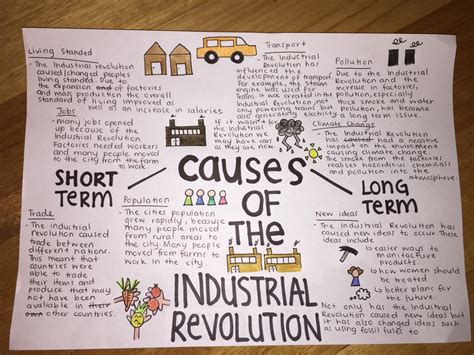 Living Standed
- The Industrial revolution
caused/changed peoples
living standed. Due to
the expansion and of factories
and mass production the overall
standard of living improved as
well as an increase in salaries
Jobs
- Many jobs opened
up because of the
Industrial Revolution.
Factories needed workers
and many people moved
to the city from the farm
to work
SHORT
TERM
Trade
- The industrial
revolution caused
trade between
different nations.
This meant that
countries were
able to trade
their items and
produce that may
not have been
available in their own other countries.
Population
- The cities population
grew rapidly, because
many people moved
from rural areas to
the city. Many people
moved from farms to
work in the city.
Transport
- The Industrial
Revolution has
influenced the
development of transport.
For example, the steam
engine was used for
Trains it was created in the
Industrial Revolution not
only powering trains but
also generating electricity
If it wasn't
for the
industrial
Revolution
may have
as they are now.
CAUSES
OF
THE
INDUSTRIAL
REVOLUTION
Pollution
Due to the Industrial
Revolution and the
increase in factories,
pollution, especially
thick smoke and water
Pollution, has become
a long term issue.
Climate Change
- The Industrial Revolution
had a negative
impact on the environment
causing climate change.
The smoke from the factories
realses hazardious chemicals
and pollution into the
atmosphere.
LONG
TERM
New ideas
- The Industrial Revolution has
caused new ideas to occur These
ideas include
easier ways to
manifacture
products.
how women should
be treated
better plans for
the future.
Not only has the Industrial
Revolution caused new ideas but
it has also changed ideas such
as using fossil fules to